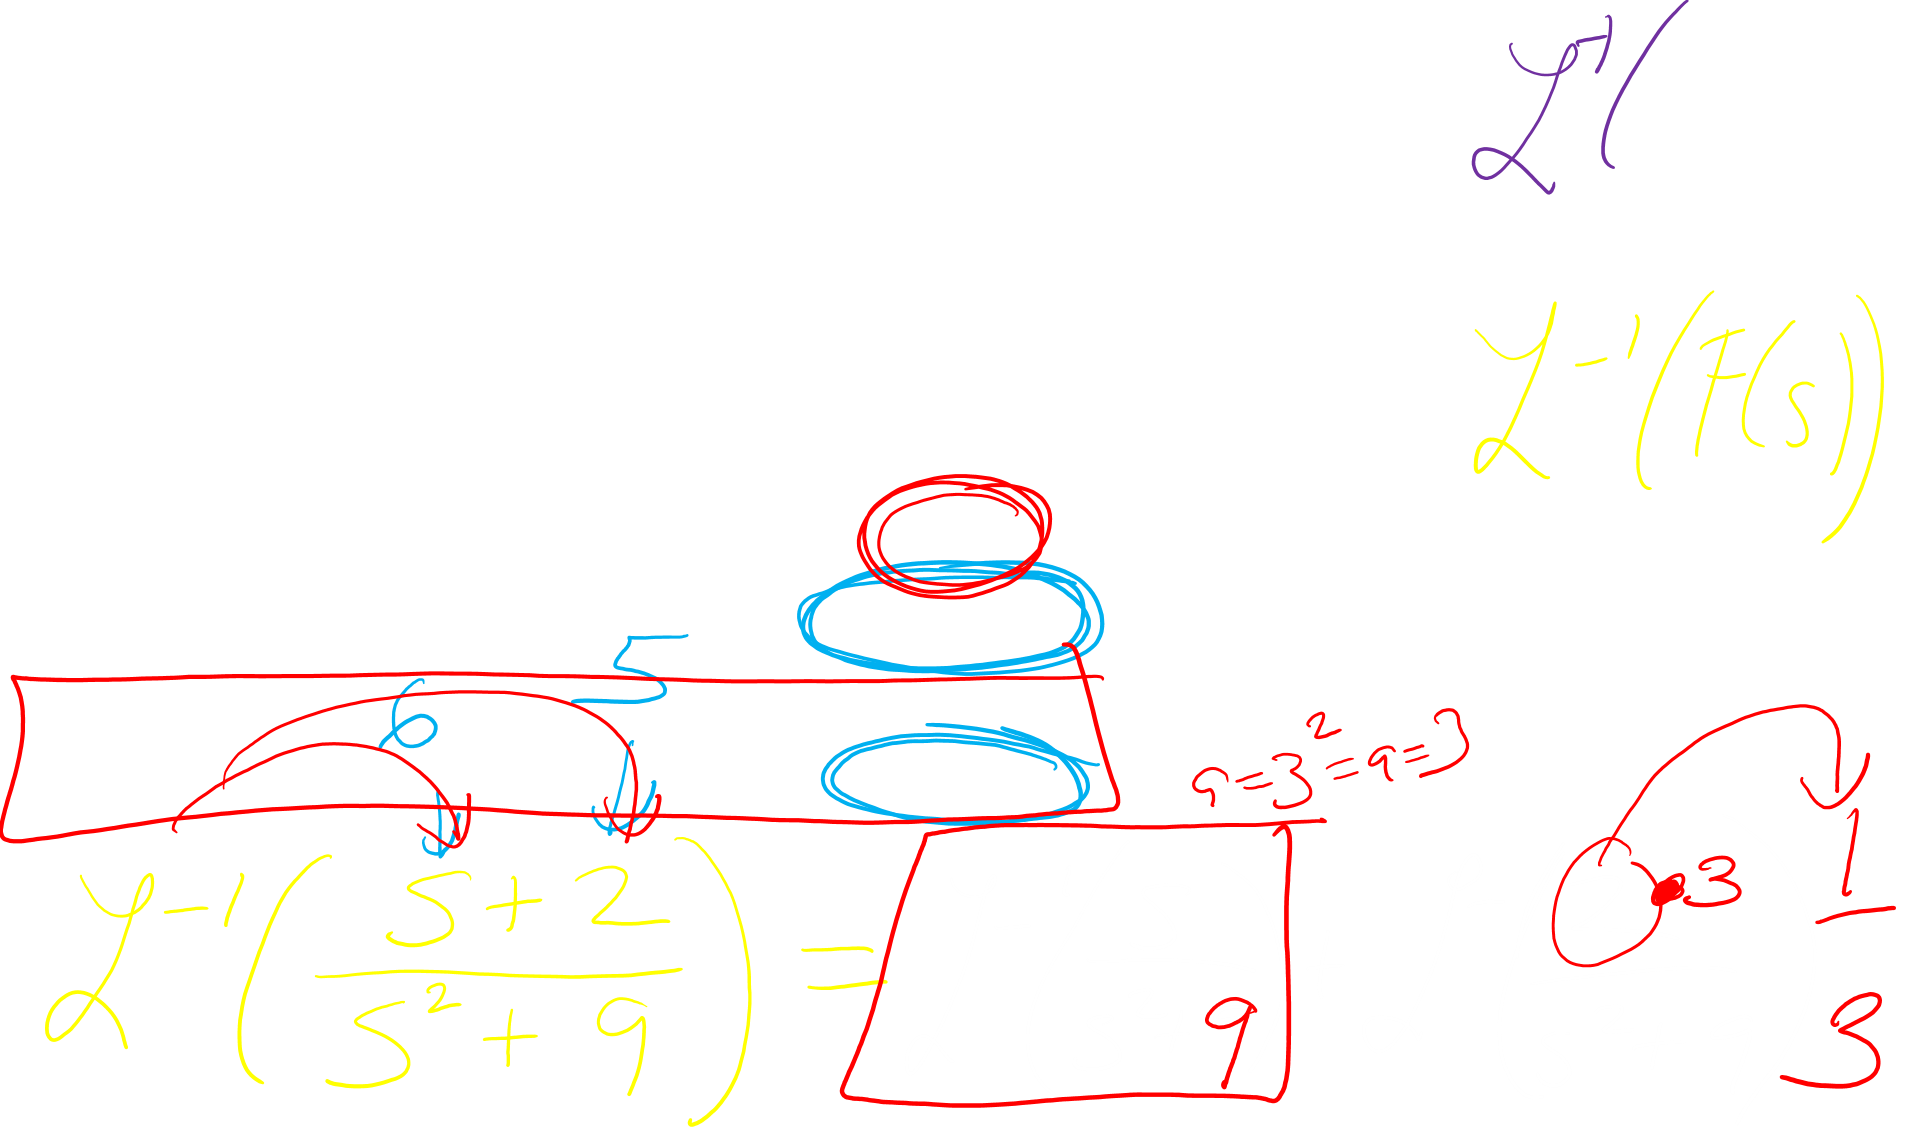 ℒ⁻¹(
ℒ⁻¹(F(s))
5
6
9=3²=9=3
ℒ⁻¹((s+2)/(s²+9)) =
9
3
1
3